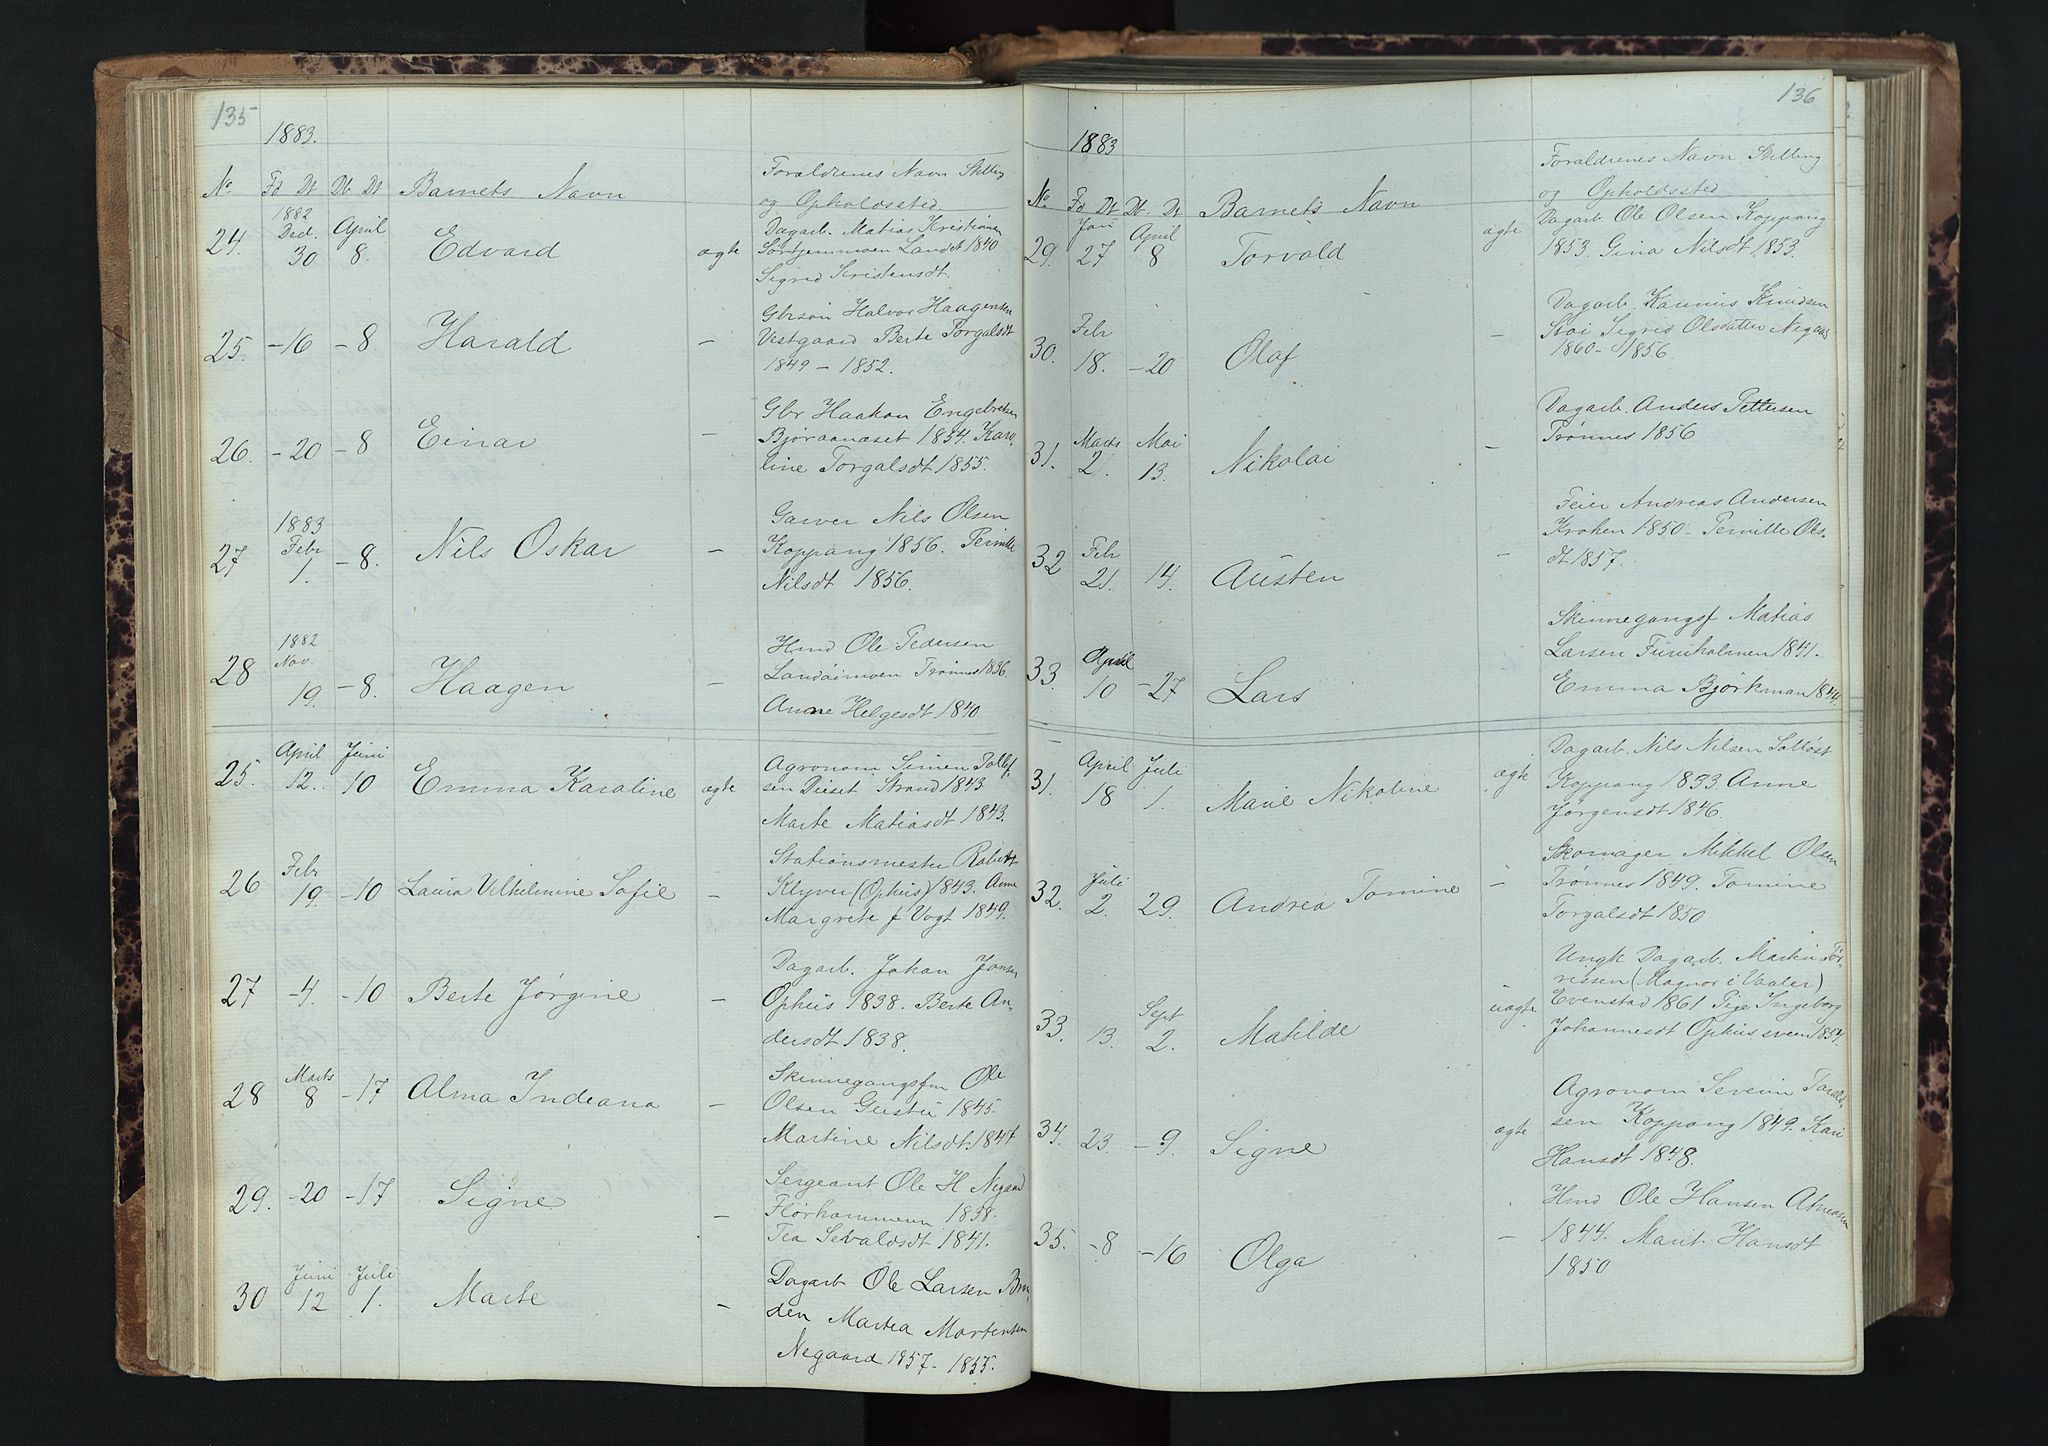 135
1883.
No. Fd Dt Db. Dt Barnets Navn Forældrenes Navn Stilling
og Opholdssted
24. 1882 Ded. 30 April 8. Edvard ægte Dagarb. Matias Kristiansen
Landet 1840
Sigrid Kristensdt.
25. -16 -8 Harald - Gbrsøn Halvor Haagensen
Vestgaard Berte Torgalsdt
1849 - 1852.
26. -20 -8 Einar - Gbr Haakon Engebretsen
Bjøraanæset 1854. Karo,
line Torgalsdt 1855.
27 1883 Febr 1. -8. Nils Oskar - Garver Nils Olsen
Koppang 1856. Pernille
Nilsdt 1856.
28 1882 Nov. 19. -8. Haagen - Hmd Ole Pedersen
Landsimoen Trønnes 1836.
Anne Helgesdt 1840
25. April 12. Juni 10 Emma Karoline ægte Agronom Simen Tollef,
sen Deiset Strand 1843
Marte Matiasdt 1843.
26 Febr 19. -10 Laura Vilhelmine Sofie - Stationsmester Robert
Klyver (Ophus) 1843. Anne
Margrete f Vogt 1849.
27 -4. -10 Berte Jørgine - Dagarb. Johan Jonsen
Ophus 1838. Berte An,
dersdt 1838.
28 Marts 8 -17 Alma Indeana - Skinnegangsfm Ole
Olsen 1845.
Martine Nilsdt 1847
29. -20 -17 Signe - Sergeant Ole H Negaard
Flørhammeren 1838.
Tea Sevaldsdt 1841.
30 Juni 12 Juli 1. Marte - Dagarb Ole Larsen Bru,
den Martea Mortensen
Negaard 1957. 1855.
136
1883
No. Fd Dt Db. Dt Barnets Navn Forældrenes Navn Stilling
og Opholdssted
29. Jan 27 April 8 Torvald ægte Dagarb. Ole Olsen Koppang
1853. Gina Nilsdt 1853.
30. Febr 18. -20 Olaf - Dagarb. Karinus Knudsen
Stai Sigrid Olsdatter Negaar
1860 - 1856.
31. Marts 2. Mai 13. Nikolai - Dagarb. Anders Pettersen
Trønnes 1856
32 Feb 21 14. Austen - Feier Andreas Andersen
Kroken 1850 - Pernille Ols,
dt 1857.
33. April 10 -27 Lars Skinnegangsf Matias
Larsen Furuholmen 1841.
Emma Bjørkman 1844.
31. April 18 Juli 1. Marie Nikoline ægte Dagarb. Nils Nilsen
Koppang 1833 Anne
Jørgensdt 1846.
32. Juli 2. 29. Andrea Tomine - Skomager Mikkel Olsen
Trønnes 1849. Tomine
Torgalsdt 1850
33. 13. Sept 2. Matilde uægte Ungk Dagarb. Martin Tor-
rissen (Magnor i Vaaler)
Evenstad 1861 Pige Ingeborg
Johannesdt Ophussveen 1854.
34. 23. -9. Signe ægte Agronom Severin Tarald,
sen Koppang 1849. Kari
Hansdt 1848.
35. -8 -16 Olga - Hmd Ole Hansen Atneosen
1844. Marit Hansdt
1850